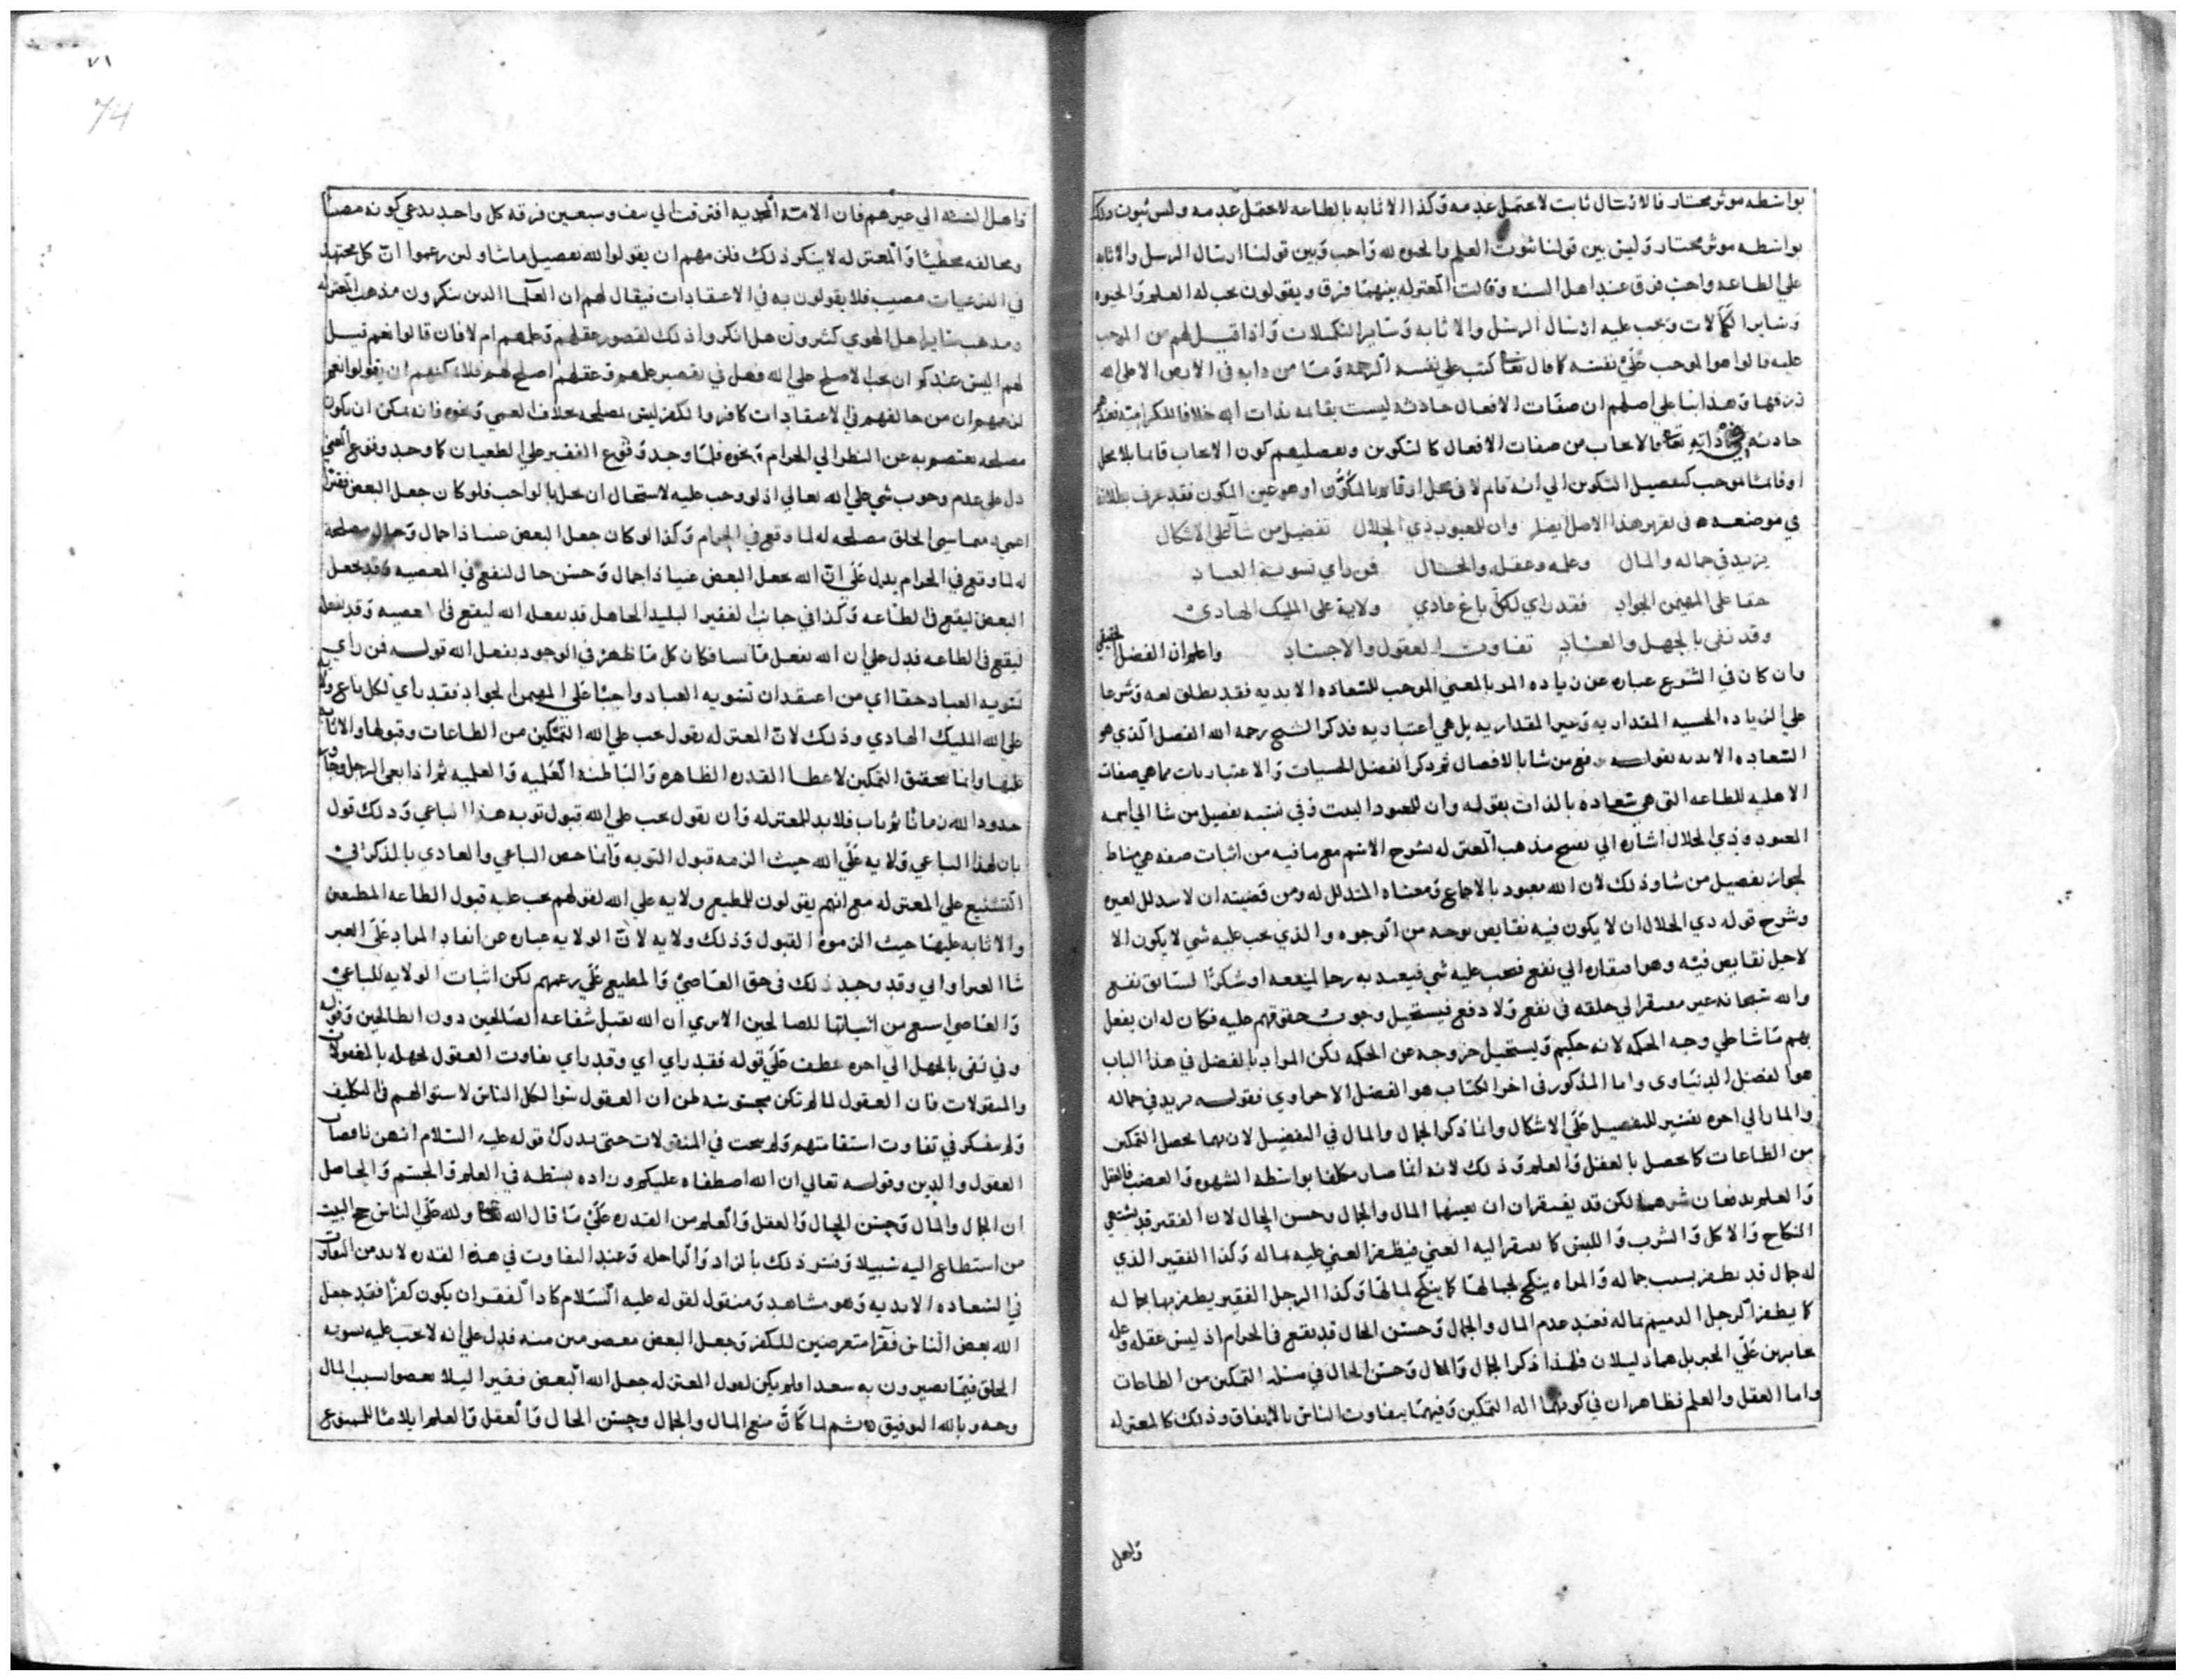 بواسطه موثر مختار فالارسال ثابت لا يحتمل عدمه وكذا الاثابه بالطاعه لا يحتمل عدمه وليس ثبوت ذلك
بواسطه موثر مختار وليس بين قولنا ثبوت العلم والحيوه لله واجب وبين قولنا ارسال الرسل والاثابه
علي الطاعه واجب فرق عند اهل السنه وقالت المعتزله بينهما فرق ويقولون يجب له العلم والحيوه
وساير الكمالات ويجب عليه ارسال الرسل والاثابه وساير التكملات واذا قيل لهم من الموجب
عليه قالوا هو الموجب علي نفسه كما قال تعا كتب علي نفسه الرحمة وما من دابه في الارض الا علي الله
رزقها وهذا بنا علي اصلهم ان صفات الافعال حادثه ليست بقايمه بذات الله خلافا للكراميه فعندهم
حادثه في ذاته تعا فالايجاب من صفات الافعال كالتكوين وتفصيلهم كون الايجاب قايما بلا محل
او قايما بموجب كتفصيل التكوين الي انه قايم لا في محل او قايم بالمكون او هو عين المكون فقد عرف بطلانه
في موضعه في تقرير هذا الاصل وان للمعبود ذي الجلال تفضيل من شا علي الاشكال
يزيد في جماله والمال وعلمه وعقله والحال فمن راي تسوية العباد
حقا علي المهيمن الجواد فقد راي لكل باغ عادي ولاية علي المليك الهادي
وقد نفى بالجهل والعناد تفاوت العقول والاجساد واعلم ان الفضل الحقيقي
وان كان في الشرع عباره عن زياده المعني الموجب للسعاده الابديه فقد يطلق لغه وشرعا
علي الزياده الحسيه المقداريه وغير المقداريه بل هي اعتباريه فذكر الشيخ رحمه الله الفضل الذي هو
السعاده الابديه بقوله من شا بالافضال ثم ذكر الفضل الحسيات والاعتباريات مما هي صفات
الاهليه للطاعه التي هي سعاده بالذات بقوله وان للمعبود البيت وفي نسبه تفضيل من شا الي اسمه
المعبود وذي الجلال اشاره الي نسخ مذهب المعتزله بشرح الاسم مع ما فيه من اثبات صفه هي مناط
لجواز تفضيل من شا وذلك لان الله معبود بالاجماع ومعناه المتذلل له ومن قضيته ان لا يتذلل لغيره
وشرح قوله ذي الجلال ان لا يكون فيه نقايص بوجه من الوجوه والذي يجب عليه شي لا يكون الا
لاجل نقايص فيه وهو افتقاره الي نفع فيجب عليه شي فيعبد به رجا لمنفعه او شكرا لسابق نفع
والله سبحانه غير مفتقر الي خلقه في نفع ولا دفع فيستحيل وجوب حقوقهم عليه فكان له ان يفعل
بهم ما شا علي وجه الحكمه لانه حكيم ويستحيل خروجه عن الحكمه لكن المراد بالفضل في هذا الباب
هو الفضل الدنياوي واما المذكور في اخر الكتاب هو الفضل الاخراوي فقوله يزيد في جماله
والمال الي اخره تفسير للتفضيل علي الاشكال وانما ذكر الجمال والمال في التفضيل لان بهما يحصل التمكين
من الطاعات كما يحصل بالعقل والعلم وذلك لانه انما صار مكلفا بواسطه الشهوه والغضب فالعقل
والعلم يدفعان شرهما لكن قد يفتقران ان يعينهما المال والجمال وحسن الحال لان الفقير قد يشتهي
النكاح والاكل والشرب واللبس كما يفتقر اليه الغني فيظفر الغني عليه بماله وكذا الفقير الذي
له جمال قد يظفر بسبب جماله والمراه ينكح لجمالها كما ينكح لمالها وكذا الرجل الفقير يظفر بها بجماله
كما يظفر الرجل الدميم بماله فعند عدم المال والجمال وحسن الحال قد يقع في الحرام اذ ليس عقله وعلمه
جابرين علي الخير بل هما دليلان فلهذا ذكر الجمال والمال وحسن الحال في مسله التمكين من الطاعات
واما العقل والعلم فظاهران في كونهما اله التمكين وفيهما يتفاوت الناس بالاتفاق وذلك كالمعتزله
واهل
٧١
74
واهل السنه الي غيرهم فان الامه المحمديه افترقت الي نيف وسبعين فرقه كل واحد يدعي كونه مصيبا
ومخالفه مخطيا والمعتزله لا ينكر ذلك فلزمهم ان يقولوا لله تفضيل ما شا ولئن زعموا ان كل مجتهد
في الفرعيات مصيب فلا يقولون به في الاعتقادات فيقال لهم ان العلما الذين ينكرون مذهب المعتزله
ومذهب ساير اهل الهوي كثيرون هل انكروا ذلك لقصور عقلهم وعلمهم ام لا فان قالوا نعم قيل
لهم اليس عندكم ان يجب الاصلح علي الله فهل في تقصير علمهم وعقلهم اصلح لهم فلا يمكنهم ان يقولوا نعم
لزعمهم ان من خالفهم في الاعتقادات كافر والكفر ليس بمصلحه بخلاف العمي ونحوه فانه يمكن ان يكون
مصلحه يعتصم به عن النظر الي الحرام ونحوه فلما وجد وقوع الفقير علي الطغيان كما وجد وقوع الغني
دل علي عدم وجوب شي علي الله تعالي اذ لو وجب عليه لاستحال ان يخل بالواجب فلو كان جعل البعض فقيرا
اعمي دميما سي الخلق مصلحه له لما وقع في الحرام وكذا لو كان جعل البعض غنيا ذا جمال وحال مصلحة
له لما وقع في الحرام يدل علي ان الله يجعل البعض غنيا ذا جمال وحسن حال ليقع في المعصيه وقد يجعل
البعض ليقع في الطاعه وكذا في جانب الفقير البليد الجاهل قد يفعله الله ليقع في المعصيه وقد يفعله
ليقع في الطاعه فدل علي ان الله يفعل ما يشا فكان كل ما ظهر في الوجود بفعل الله قوله فمن راي
تسويه العباد حقا اي من اعتقد ان تسويه العباد واجبا علي المهيمن الجواد فقد راي لكل باغ ولايه
علي الله المليك الهادي وذلك لان المعتزله يقول يجب علي الله التمكين من الطاعات وقبولها والاثابه
عليها وانما يتحقق التمكين لاعطا القدره الظاهره والباطنه العقليه والعلميه ثم اذا بغي الرجل وجاوز
حدود الله زمانا ثم تاب فلابد للمعتزله وان يقول يجب علي الله قبول توبه هذا الباغي وذلك قول
بان لهذا الباغي ولايه علي الله حيث الزمه قبول التوبه وانما خص الباغي والعادي بالذكر في
التشنيع علي المعتزله مع انهم يقولون للمطيع ولايه علي الله لقولهم يجب عليه قبول الطاعه المطيعين
والاثابه عليها حيث الزموه القبول وذلك ولايه لان الولايه عباره عن انفاذ المراد علي الغير
شا الغير او ابي وقد وجد ذلك في حق العاصي والمطيع علي زعمهم لكن اثبات الولايه للباغي
والعاصي اشنع من اثباتها للصالحين الا تري ان الله يقبل شفاعه الصالحين دون الطالحين وقوله
وفي نفي بالجهل الي اخره عطف علي قوله فقد راي اي وقد راي تفاوت العقول لجهله بالمعقولات
والمنقولات فان العقول لما لم تكن محسوسه ظن ان العقول سوا لكل الناس لاستوائهم في التكليف
ولم يتفكر في تفاوت استفامتهم ولم يبحث في المنقولات حتي يدرك قوله عليه السلام انهن ناقصات
العقول والدين وقوله تعالي ان الله اصطفاه عليكم وزاده بسطه في العلم والجسم والحاصل
ان الجمال والمال وحسن الحال والعقل والعلم من القدره علي ما قال الله تعا ولله علي الناس حج البيت
من استطاع اليه سبيلا وفسر ذلك بالزاد والراحله وعند التفاوت في هذه القدره لابد من التفاوت
في السعاده الابديه وهو مشاهد ومنقول لقوله عليه السلام كاد الفقر ان يكون كفرا فقد جعل
الله بعض الناس فقرا متعرضين للكفر وجعل البعض معصومين منه فدل علي انه لا يجب عليه تسويه
الخلق فيما يصيرون به سعدا ولم يكن لقول المعتزله جعل الله البعض فقيرا ليلا يعصوا بسبب المال
وجه وبالله التوفيق ثم لما كان منع المال والجمال وحسن الحال والعقل والعلم ايلاما للممنوع